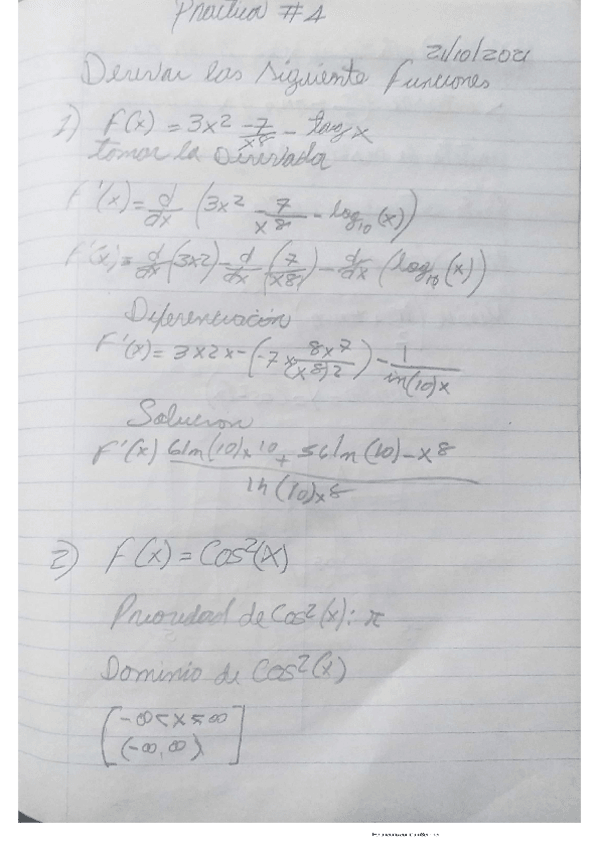 Practica #4
21/10/2021
Derivar las siguiente funciones
1) F(x) = 3x² - 7/x⁸ - log x
tomar la Derivada
F'(x) = d/dx (3x² - 7/x⁸ - log₁₀(x))
F'(x) = d/dx (3x2) - d/dx (7/x8) - d/dx (log₁₀(x))
Diferenciación
F'(x) = 3x2x - (-7x 8x7/(x8)2) - 1/in(10)x
Solucion
F'(x) 6ln(10)x¹⁰ + 56ln(10) - x⁸ / ln(10)x⁸
2) F(x) = Cos²(x)
Prioridad de Cos²(x): π
Dominio de Cos²(x)
[-∞<x<∞
(-∞,∞)]